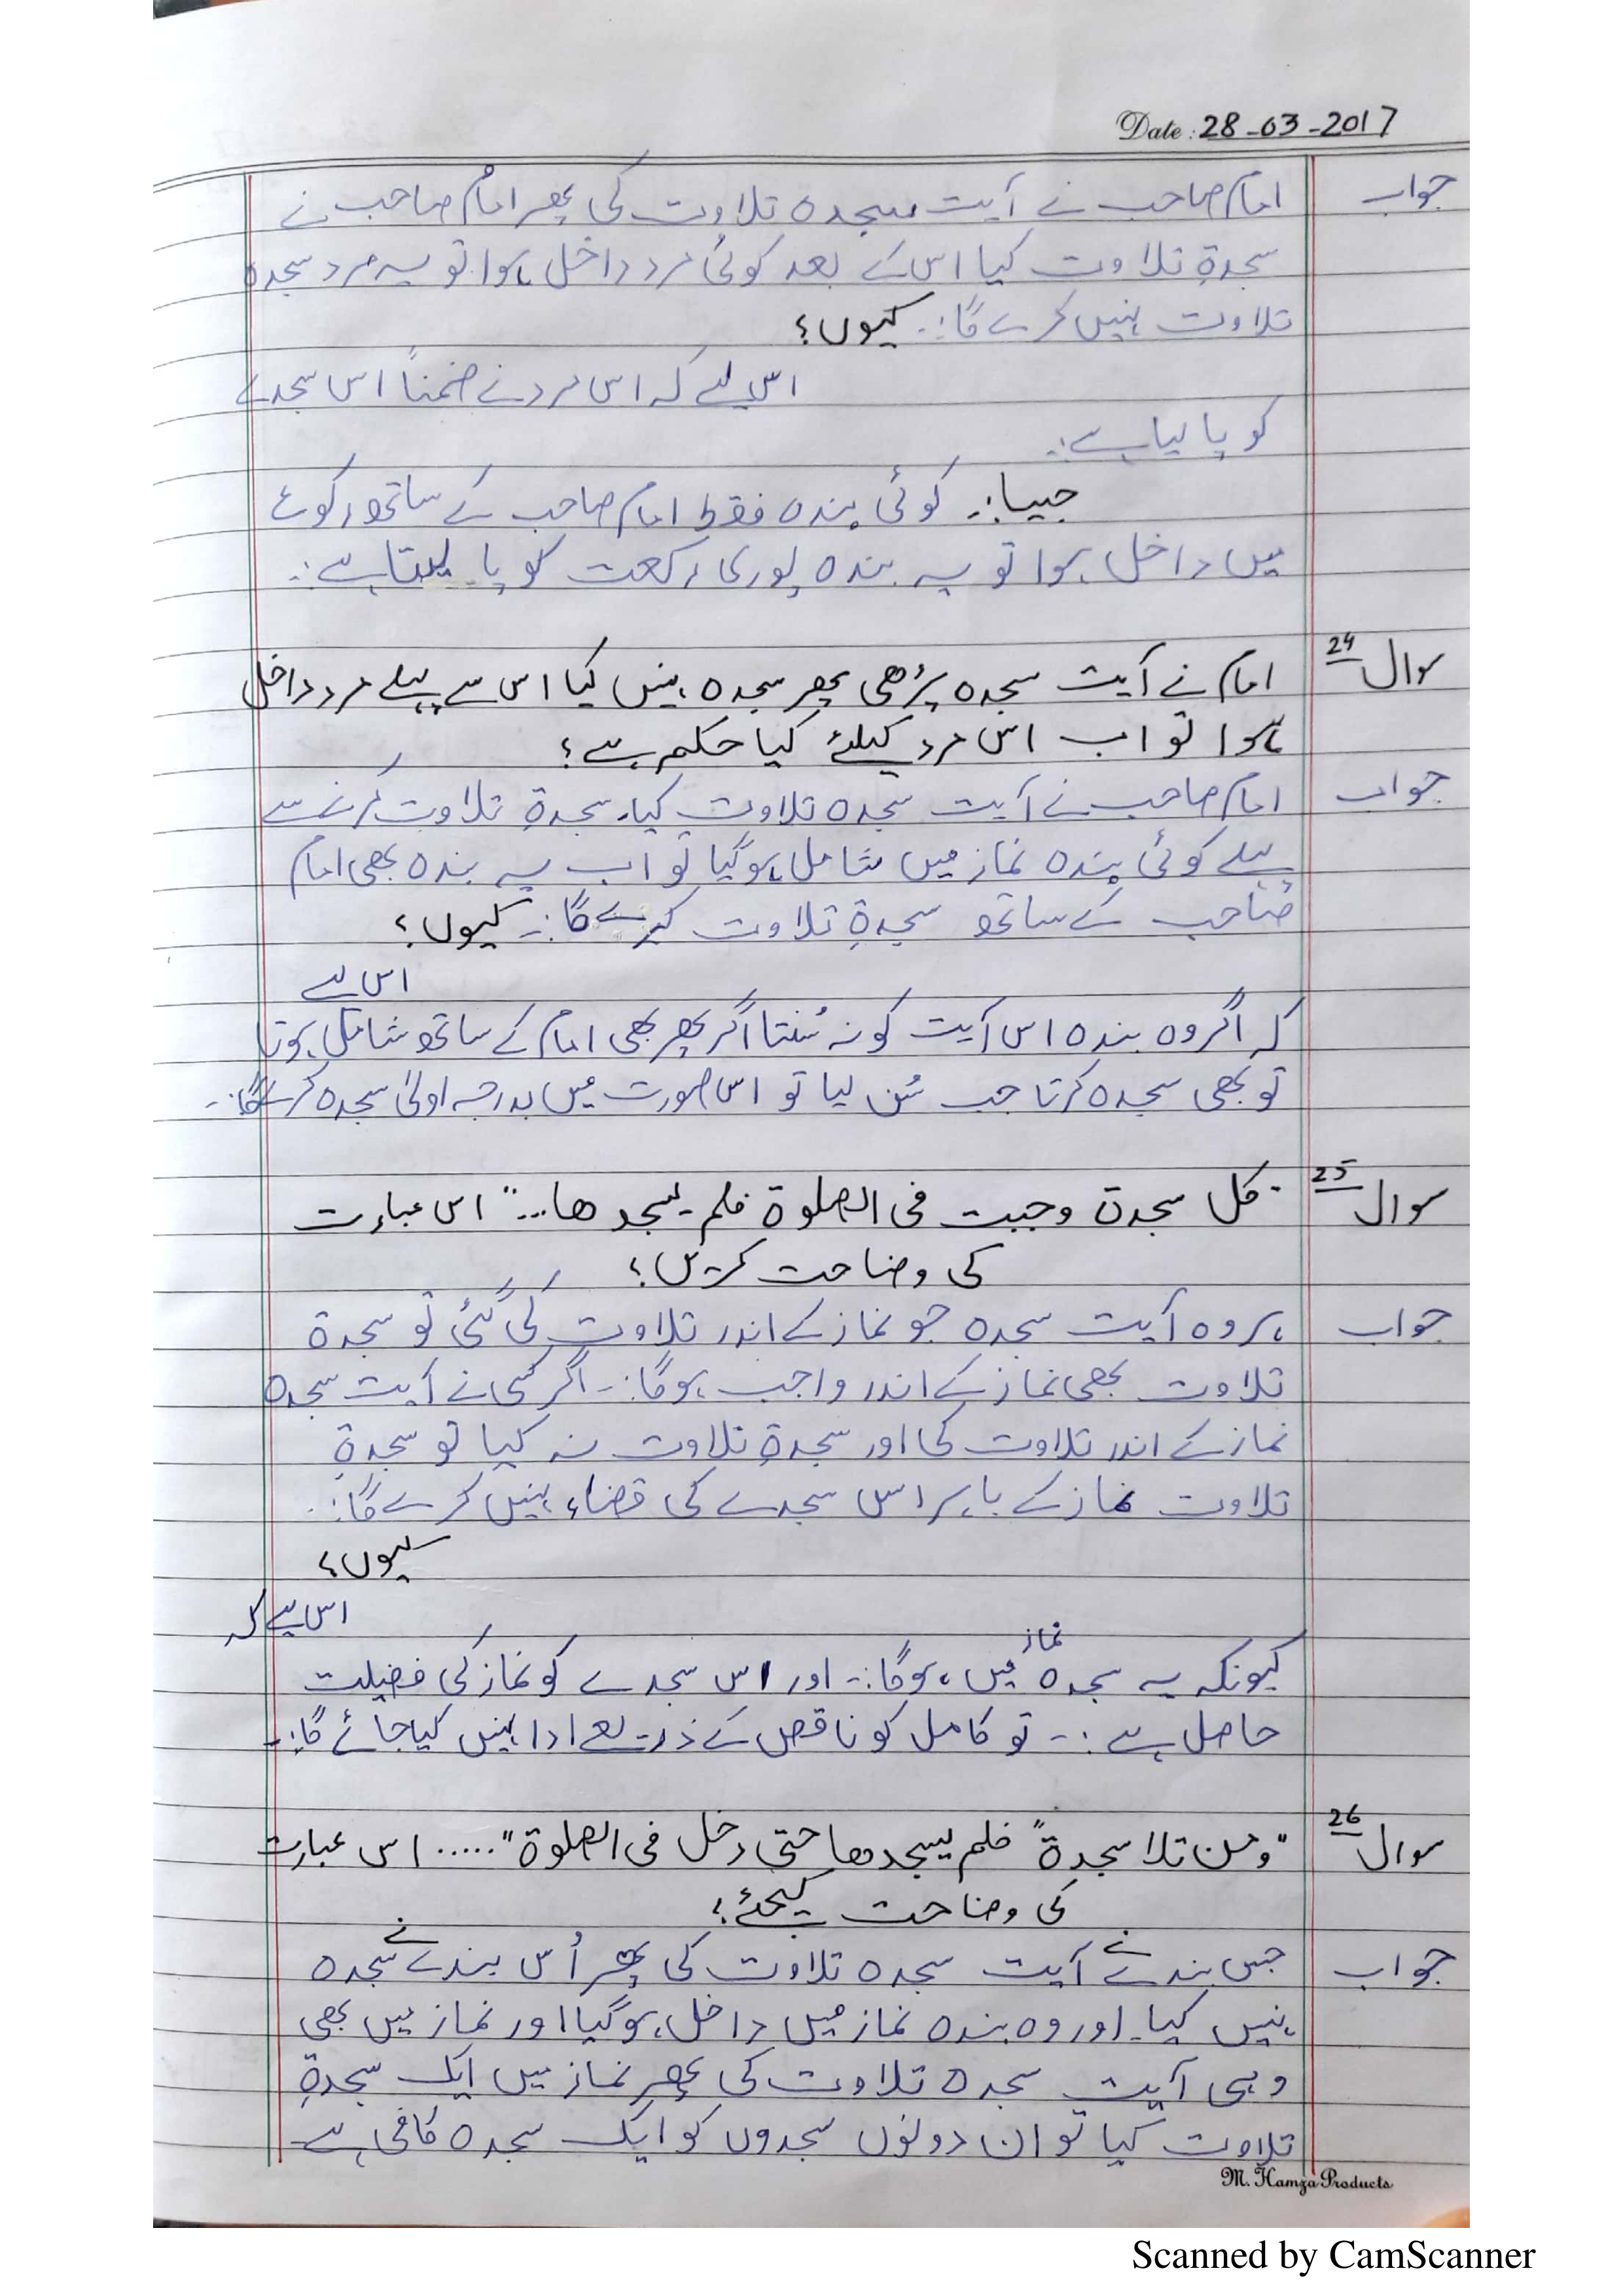 Date: 28-03-2017
جواب امام صاحب نے آیت سجدہ تلاوت کی پھر امام صاحب نے
سجدۃِ تلاوت کیا اس کے بعد کوئی مرد داخل ہوا تو یہ مرد سجدہ
تلاوت نہیں کرے گا:۔ کیوں؟
اس لیے کہ اس مرد نے ضمناً اس سجدے
کو پا لیا ہے:۔
جیسا:۔ کوئی بندہ فقط امام صاحب کے ساتھ رکوع
میں داخل ہوا تو یہ بندہ پوری رکعت کو پا لیتا ہے:۔
سوال 24 امام نے آیت سجدہ پڑھی پھر سجدہ نہیں کیا اس سے پہلے مرد داخل
ہوا تو اب اس مرد کیلئے کیا حکم ہے؟
جواب امام صاحب نے آیت سجدہ تلاوت کیا۔ سجدۃِ تلاوت کرنے سے
پہلے کوئی بندہ نماز میں شامل ہوگیا تو اب یہ بندہ بھی امام
صاحب کے ساتھ سجدۃِ تلاوت کرے گا:۔ کیوں؟
اس لیے
کہ اگر وہ بندہ اس آیت کو نہ سُنتا اگر پھر بھی امام کے ساتھ شامل ہوتا
تو بھی سجدہ کرتا جب سُن لیا تو اس صورت میں بدرجہ اولیٰ سجدہ کرے گا:۔
سوال 25 "کل سجدۃ وجبت فی الصلوۃ فلم یسجدھا..." اس عبارت
کی وضاحت کریں؟
جواب ہر وہ آیت سجدہ جو نماز کے اندر تلاوت کی گئی تو سجدۃ
تلاوت بھی نماز کے اندر واجب ہوگا:۔ اگر کسی نے آیت سجدہ
نماز کے اندر تلاوت کی اور سجدۃِ تلاوت نہ کیا تو سجدۃِ
تلاوت نماز کے باہر اس سجدے کی قضاء نہیں کرے گا:۔
کیوں؟
اس لیے کہ
کیونکہ یہ سجدہ نماز میں ہوگا:۔ اور اس سجدے کو نماز کی فضیلت
حاصل ہے:۔ تو کامل کو ناقص کے ذریعے ادا نہیں کیا جائے گا:۔
سوال 26 "ومن تلا سجدۃً فلم یسجدھا حتی دخل فی الصلوۃ"..... اس عبارت
کی وضاحت کیجئے؟
جواب جس بندے نے آیت سجدہ تلاوت کی پھر اُس بندے نے سجدہ
نہیں کیا۔ اور وہ بندہ نماز میں داخل ہوگیا اور نماز میں بھی
وہی آیت سجدہ تلاوت کی پھر نماز میں ایک سجدۃِ
تلاوت کیا تو ان دونوں سجدوں کو ایک سجدہ کافی ہے۔
M. Hamza Products
Scanned by CamScanner